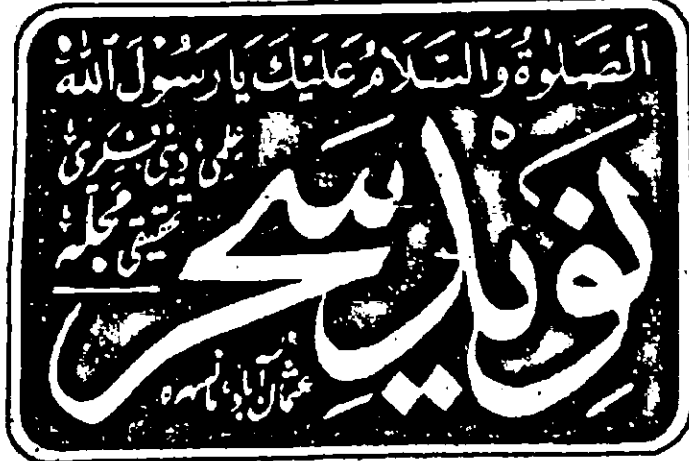 اَلصَّلٰوةُ وَالسَّلَامُ عَلَيْكَ يَا رَسُوْلَ اللّٰهِ
علمی، دینی، فکری
تحقیقی مجلہ
نویدِ سحر
عثمان آباد، مانسہرہ